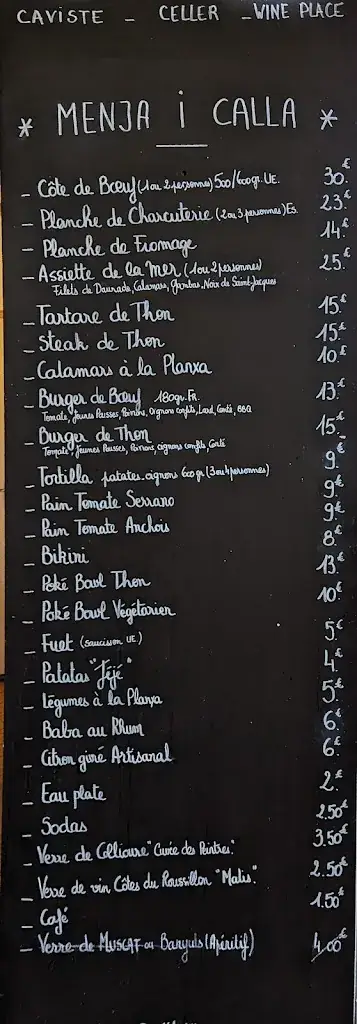 CAVISTE - CELLER - WINE PLACE
* MENJA i CALLA *
- Côte de Bœuf (1 ou 2 personnes) 500/600gr. UE. 30.€
- Planche de Charcuterie (2 ou 3 personnes) Es. 23.€
- Planche de Fromage 14.€
- Assiette de la Mer (1 ou 2 personnes) 25.€
Filets de Daurade, Calamars, Gambas, Noix de Saint-Jacques
- Tartare de Thon 15.€
- Steak de Thon 15.€
- Calamars à la Planxa 10.€
- Burger de Bœuf 180gr. FR. 13.€
Tomate, Jeunes Pousses, Poivrons, Oignons confits, Lard, Comté, BBQ
- Burger de Thon 15.€
Tomate, Jeunes Pousses, Poivrons, oignons confits, Comté
- Tortilla patates. oignons 600 gr (3 ou 4 personnes) 9.€
- Pain Tomate Serrano 9.€
- Pain Tomate Anchois 9.€
- Bikini 8.€
- Poké Bowl Thon 13.€
- Poké Bowl Végétarien 10.€
- Fuet (saucisson UE.) 5.€
- Patatas "Féjé" 4.€
- Légumes à la Planxa 5.€
- Baba au Rhum 6.€
- Citron givré Artisanal 6.€
- Eau plate 2.€
- Sodas 2.50€
- Verre de Collioure "Cuvée des Peintres." 3.50€
- Verre de vin Côtes du Roussillon "Matis". 2.50€
- Café 1.50€
- Verre de MUSCAT ou Banyuls (Apéritif) 4.00€